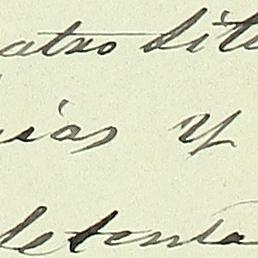 atro situ
ias y
detenta